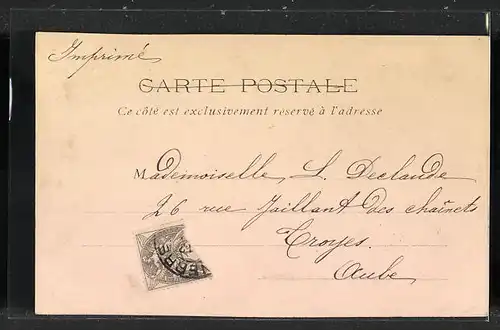 Imprimé
CARTE POSTALE
Ce côté est exclusivement réservé à l'adresse
Mademoiselle L. Declaude
26 rue Jaillant des chaînets
Troyes.
Aube